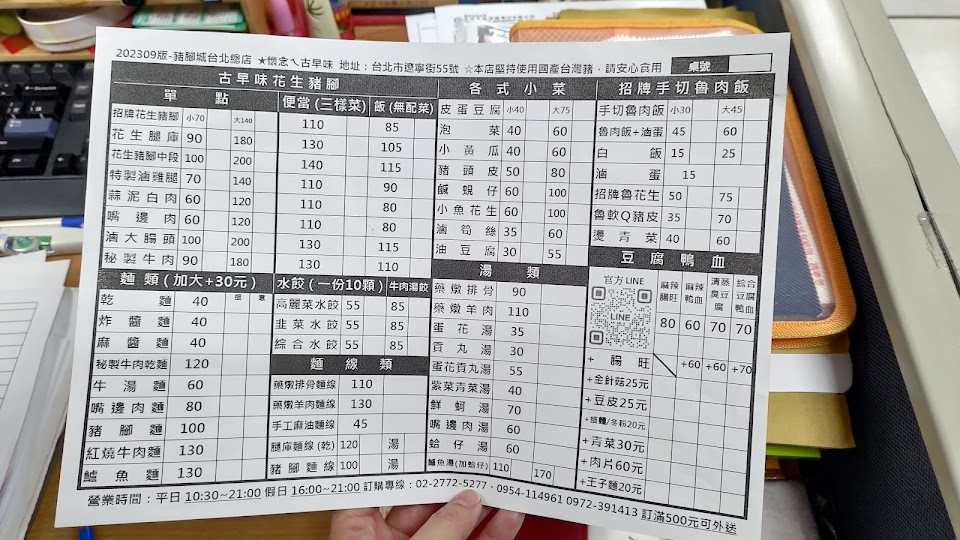 202309版-豬腳城台北總店 ★懷念ㄟ古早味 地址:台北市遼寧街55號 ☆本店堅持使用國產台灣豬,請安心食用 桌號
古早味花生豬腳
單點 便當(三樣菜) 飯(無配菜)
招牌花生豬腳 小70 大140 110 85
花生腿庫 90 180 130 105
花生豬腳中段 100 200 140 115
特製滷雞腿 70 140 110 90
蒜泥白肉 60 120 110 80
嘴邊肉 60 120 110 80
滷大腸頭 100 200 130 115
秘製牛肉 90 180 130 110
麵類(加大+30元)
乾麵 40
炸醬麵 40
麻醬麵 40
秘製牛肉乾麵 120
牛湯麵 60
嘴邊肉麵 80
豬腳麵 100
紅燒牛肉麵 130
鱸魚麵 130
水餃(一份10顆) 牛肉湯餃
高麗菜水餃 55 85
韭菜水餃 55 85
綜合水餃 55 85
麵線類
藥燉排骨麵線 110
藥燉羊肉麵線 130
手工麻油麵線 45
腿庫麵線(乾) 120 湯
豬腳麵線 100 湯
各式小菜
皮蛋豆腐 小40 大75
泡菜 40 60
小黃瓜 40 60
豬頭皮 50 80
鹹蜆仔 60 100
小魚花生 60 100
滷筍絲 35 60
油豆腐 30 55
湯類
藥燉排骨 90
藥燉羊肉 110
蛋花湯 35
貢丸湯 30
蛋花貢丸湯 55
紫菜青菜湯 40
鮮蚵湯 70
嘴邊肉湯 60
蛤仔湯 60
鱸魚湯(加蛤仔) 110 170
招牌手切魯肉飯
手切魯肉飯 小30 大45
魯肉飯+滷蛋 45 60
白飯 15 25
滷蛋 15
招牌魯花生 50 75
魯軟Q豬皮 35 70
燙青菜 40 60
豆腐鴨血
官方 LINE
LINE
麻辣腸旺 麻辣鴨血 清蒸臭豆腐 綜合豆腐鴨血
80 60 70 70
+腸旺 +60 +60 +70
+金針菇25元
+豆皮25元
+細麵/冬粉20元
+青菜30元
+肉片60元
+王子麵20元
營業時間:平日 10:30~21:00 假日 16:00~21:00 訂購專線:02-2772-5277、0954-114961 0972-391413 訂滿500元可外送